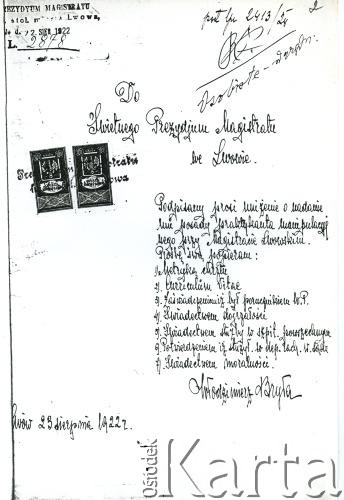 PREZYDYUM MAGISTRATU
stoł. miasta Lwowa,
d. 22 SIER 1922
L. 2878
2413/24
2
Osobiste
Do
Świetnego Prezydjum Magistratu
we Lwowie.
Podpisany prosi uniżenie o nadanie
mu posady praktykanta manipulacyj
nego przy Magistracie Lwowskim.
Prośbę swą popieram:
1) Metryką chrztu
2) Curriculum Vitae
3) Zaświadczeniem iż był porucznikiem W.P.
4) Świadectwem dojrzałości
5) Świadectwem służby w szpit. powszechnym
6) Potwierdzeniem iż służył w
7) Świadectwem moralności.
Włodzimierz Bryła
Lwów 23 sierpnia 1922 r.
Ośrodek
Karta